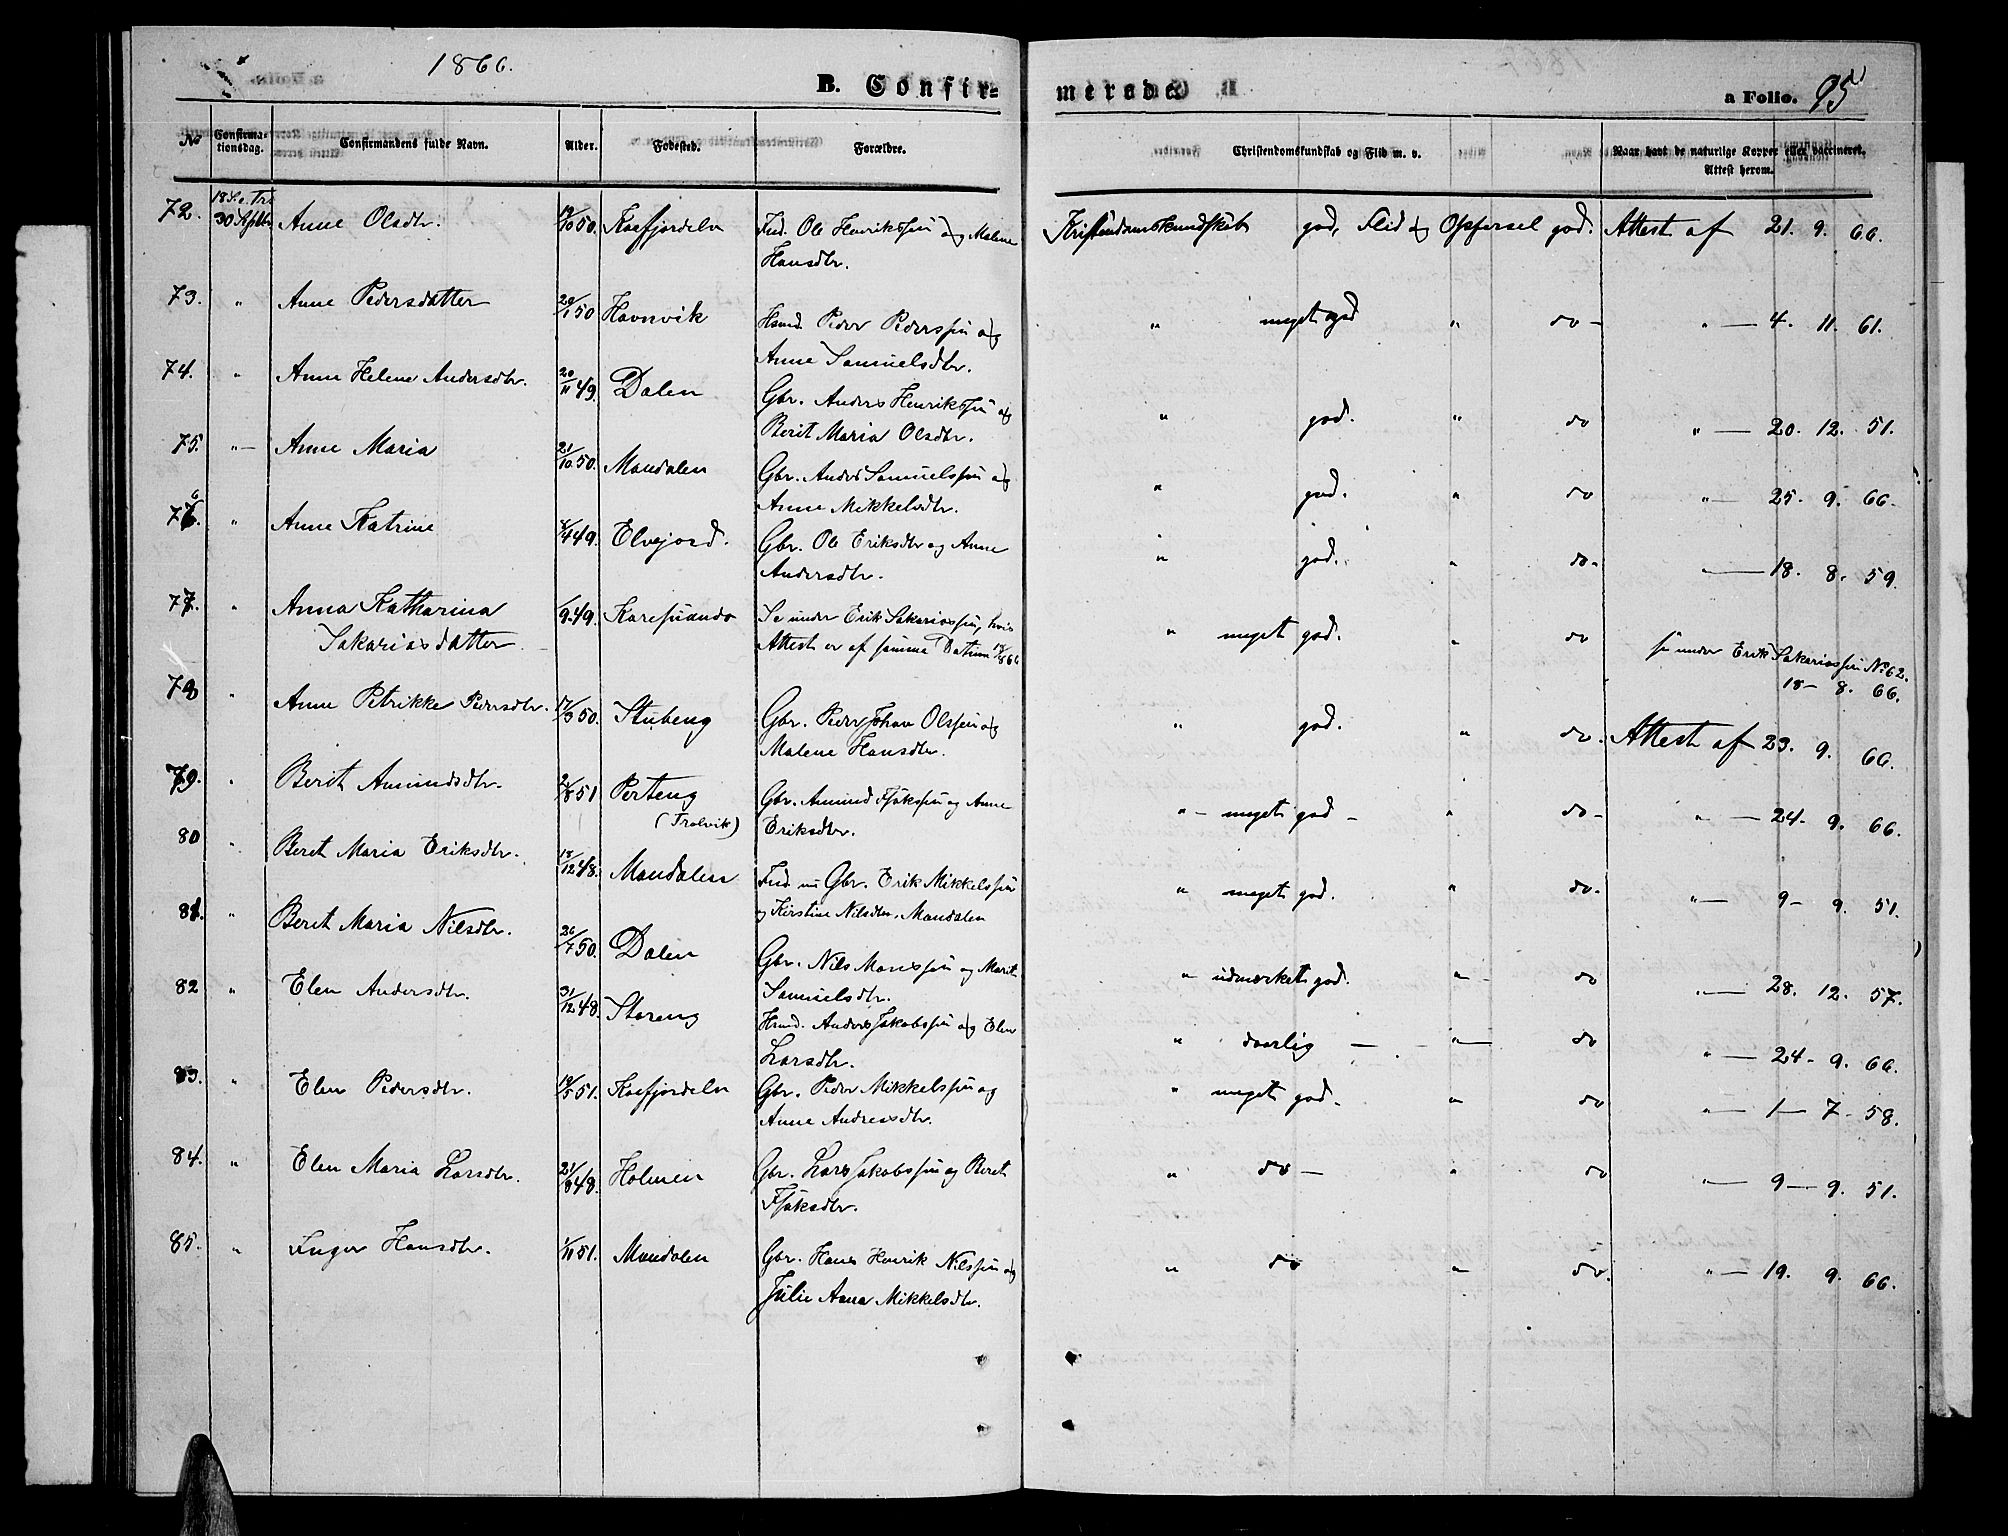 1866.
B. Confir-
merede
a Folio. 95
No
Confirma-
tionsdag.
Confirmandens fulde Navn.
Alder.
Fødested.
Forældre.
Christendomskundskab og Flid m. v.
Naar havt de naturlige Kopper eller vaccineret.
Attest herom.
72. 18 S. e. Tr. 30 Septbr Anne Olsdtr. 19/10 50. Kaafjordeln Ind. Ole Henrikssøn og Malene Kristendomskundskab god, Flid og Opførsel god. Attest af 21. 9. 66.
Hansdtr.
73. " Anne Pedersdatter 20/1 50 Havnvik Hsmd. Peder Pederssøn og " meget god " do - " — 4. 11. 61.
Anne Samuelsdtr.
74. " Anne Helene Andersdtr. 20/11 49. Dalen Gbr. Anders Henrikssøn og " god. " do " — 20. 12. 51.
Berit Maria Olsdtr.
75. " Anne Maria 21/10 50. Mandalen Gbr. Anders Samuelssøn og " god. " do " — 25. 9. 66.
Anne Mikkelsdtr.
76. " Anne Katrine 8/4 49. Elvejord. Gbr. Ole Eriksdtr og Anne " god. " do - " — 18. 8. 59.
Andersdtr.
77. " Anna Katharina /9 49. Karesuando Se under Erik Sakariassøn, hvis " meget god. " do se under Erik Sakariassøn No 62.
Sakariasdatter Attest er af samme Datum 18/8 66 18 - 8. 66.
78 " Anne Petrikke Pedersdtr. 17/3 50. Stubeng Gbr. Peder Johan Olssøn og " god. " do. Attest af 23. 9. 66.
Malene Hansdtr.
79. " Berit Amundsdtr. 2/8 51 Porteng Gbr. Amund Isakssøn og Anne " - meget god - " do - " — 24 - 9. 66.
(Trolvik) Eriksdtr.
80 " Beret Maria Eriksdtr. 18/12 48. Mandalen Ind. nu Gbr. Erik Mikkelssøn " meget god. " do - " — 9 - 9. 51.
og Kirstine Nilsdtr. Mandalen
81. " Beret Maria Nilsdtr. 26/7 50. Dalen Gbr. Nils Monssøn og Marit " udmærket god. " - do " — 28. 12. 57.
Samuelsdtr.
82 " Elen Andersdtr. 31/12 48. Storeng Hsmd. Anders Jakobssøn og Elen " daarlig — " — do " — 24 - 9. 66.
Larsdtr.
83. " Elen Pedersdtr. 18/5 51. Kaafjordeln Gbr. Peder Mikkelssøn og " meget god. " do " — 1 — 7 - 58.
Anne Andreasdtr.
84. " Elen Maria Larsdtr. 21/8 48. Holmen Gbr. Lars Jakobssøn og Beret " do - " do " — 9 — 9. 51.
Isaksdtr.
85. " Inger Hansdtr. 1/11 51. Mandalen Gbr. Hans Henrik Nilssøn og " do " do. " — 19. 9. 66.
Julie Anna Mikkelsdtr.